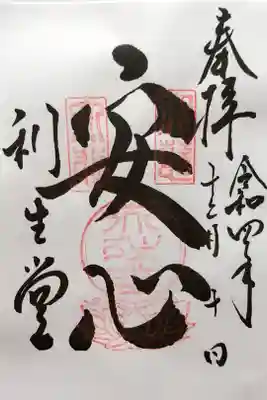 奉拝
令和四年
十二月十日
安心
利生堂